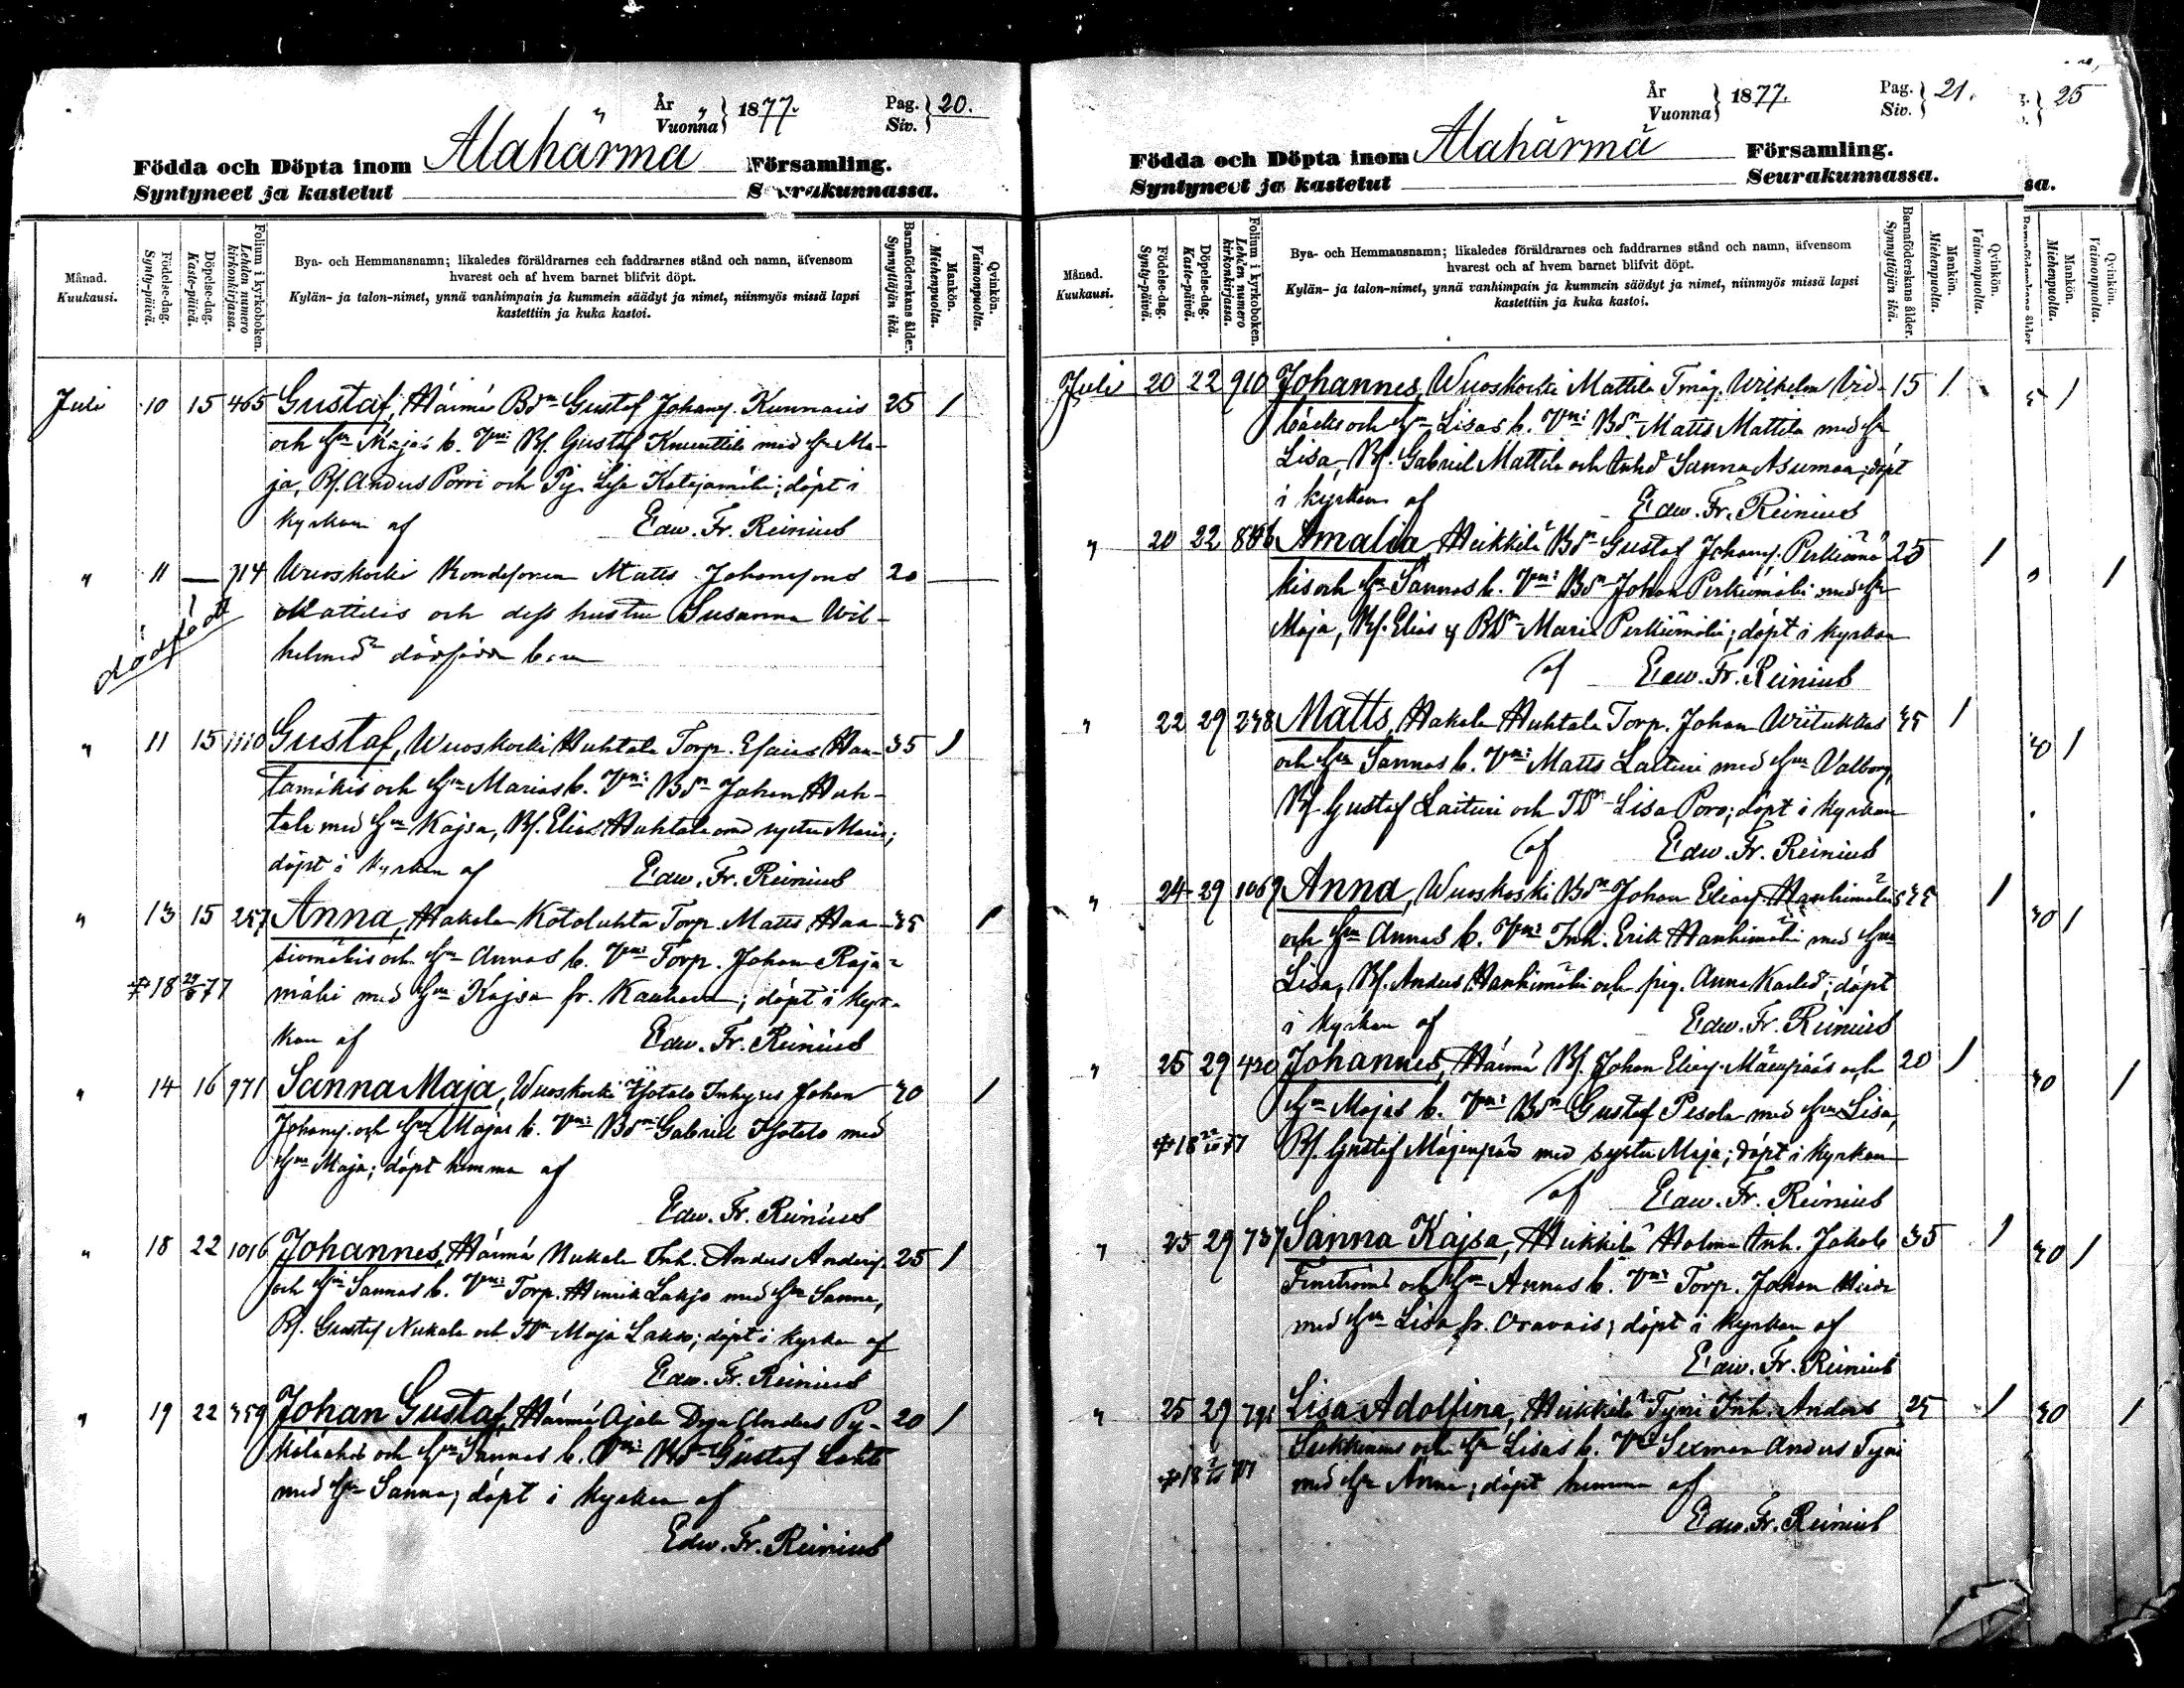 År
Vuonna } 1877.
Pag.
Siv. } 20.
Födda och Döpta inom Alahärmä Församling.
Syntyneet ja kastetut Seurakunnassa.
Månad.
Kuukausi.
Födelse-dag.
Synty-päivä.
Döpelse-dag.
Kaste-päivä.
Folium i kyrkoboken.
Lehden numero kirkonkirjassa.
Bya- och Hemmansnamn; likaledes föräldrarnes och faddrarnes stånd och namn, äfvensom
hvarest och af hvem barnet blifvit döpt.
Kylän- ja talon-nimet, ynnä vanhimpain ja kummein säädyt ja nimet, niinmyös missä lapsi
kastettiin ja kuka kastoi.
Barnaföderskans ålder.
Synnyttäjän ikä.
Mankön.
Miehenpuolta.
Qvinkön.
Vaimonpuolta.
Juli 10 15 465 Gustaf, Härmä Bdn Gustaf Johans. Kunnaris 25 1
och Hu Majas b. Vn: Bs. Gustaf Knuuttila med Hu Ma-
ja, Bs. Anders Porri och Pig. Lisa Katajamäki; döpt i
kyrkan af Edw. Fr. Reinius
" 11 — 714 Wuoskoski Bondesonen Matts Johanssons 20 —
dödfödt
Mattilas och dess hustru Susanna Wil-
helmas dödfödda barn
" 11 15 1110 Gustaf, Wuoskoski Huhtala Torp. Esaias Han- 35 1
tamäkis och Hu Marias b. Vn: Bdn Johan Huh-
tala med Hu Kajsa, Bs. Elias Huhtala med syster Maria;
döpt i kyrkan af Edw. Fr. Reinius
" 13 15 257 Anna, Hakola Kotoluhta Torp. Matts Haa- 35 1
siomäkis och Hu Annas b. Vn: Torp. Johan Raja-
‡ 18 29/8 77 mäki med Hu Kajsa fr. Kauhava; döpt i kyr-
kan af Edw. Fr. Reinius
" 14 16 971 Sanna Maja, Wuoskoski Isotalo Inhyses Johan 40 1
Johans. och Hu Majas b. Vn: Bdn Gabriel Isotalo med
Hu Maja; döpt hemma af
Edw. Fr. Reinius
" 18 22 1016 Johannes, Härmä Nukala Inh. Anders Anders. 25 1
och Hu Sannas b. Vn: Torp. Henrik Lakso med Hu Sanna,
Bs. Gustaf Nukala och TDr Maja Lakso; döpt i kyrkan af
Edw. Fr. Reinius
" 19 22 359 Johan Gustaf, Härmä Ajala Drg. Anders Py- 20 1
och Hu Sannas b. Vn: Bdn Gustaf Lahti
med Hu Sanna; döpt i kyrkan af
Edw. Fr. Reinius
År
Vuonna } 1877.
Pag.
Siv. } 21.
Födda och Döpta inom Alahärmä Församling.
Syntyneet ja kastetut Seurakunnassa.
Månad.
Kuukausi.
Födelse-dag.
Synty-päivä.
Döpelse-dag.
Kaste-päivä.
Folium i kyrkoboken.
Lehden numero kirkonkirjassa.
Bya- och Hemmansnamn; likaledes föräldrarnes och faddrarnes stånd och namn, äfvensom
hvarest och af hvem barnet blifvit döpt.
Kylän- ja talon-nimet, ynnä vanhimpain ja kummein säädyt ja nimet, niinmyös missä lapsi
kastettiin ja kuka kastoi.
Barnaföderskans ålder.
Synnyttäjän ikä.
Mankön.
Miehenpuolta.
Qvinkön.
Vaimonpuolta.
Juli 20 22 910 Johannes, Wuoskoski Mattila Wilhelm Vid- 15 1
bäcks och Hu Lisas b. Vn: Bdn Matts Mattila med Hu
Lisa, Bs. Gabriel Mattila och Sanna Asumaa; döpt
i kyrkan af Edw. Fr. Reinius
" 20 22 Amalia, Heikkilä Bdn Gustaf Johans. Perkiömä- 25 1
kis och Hu Sannas b. Vn: Bdn Johan Perkiömäki med Hu
Maja, Bs. Elias & BDr Maria Perkiömäki; döpt i kyrkan
af Edw. Fr. Reinius
" 22 29 238 Matts, Hakola Huhtala Torp. Johan Wiitukkas 35 1
och Hu Sannas b. Vn: Matts Laituri med Hu Valborg,
Bs. Gustaf Laituri och TDr Lisa Poro; döpt i kyrkan
af Edw. Fr. Reinius
" 24 29 1069 Anna, Wuoskoski Bdn Johan Elias. Hanhimäkis 35 1
och Hu Annas b. Vn: Inh. Erik Hanhimäki med Hu
Lisa, Bs. Anders Hanhimäki och pig. Anna; döpt
i kyrkan af Edw. Fr. Reinius
" 25 29 420 Johannes, Härmä Bs. Johan Elias. Mäenpääs och 20 1
Hu Majas b. Vn: Bdn Gustaf Pesola med Hu Lisa,
‡ 18 22/10 77 Bs. Gustaf Mäenpää med syster Maja; döpt i kyrkan
af Edw. Fr. Reinius
" 25 29 737 Sanna Kajsa, Heikkilä Holma Inh. Jakob 35 1
Finströms och Hu Annas b. Vn: Torp. Johan
med Hu Lisa fr. Oravais; döpt i kyrkan af
Edw. Fr. Reinius
" 25 29 791 Lisa Adolfina, Heikkilä Tyni Inh. Anders 25 1
och Hu Lisas b. Vn: Sexman Anders Tyni
med Hu Anna; döpt hemma af
Edw. Fr. Reinius
25
sa.
Mankön.
Miehenpuolta.
Qvinkön.
Vaimonpuolta.
1
1
40 1
30 1
30 1
30 1
30 1